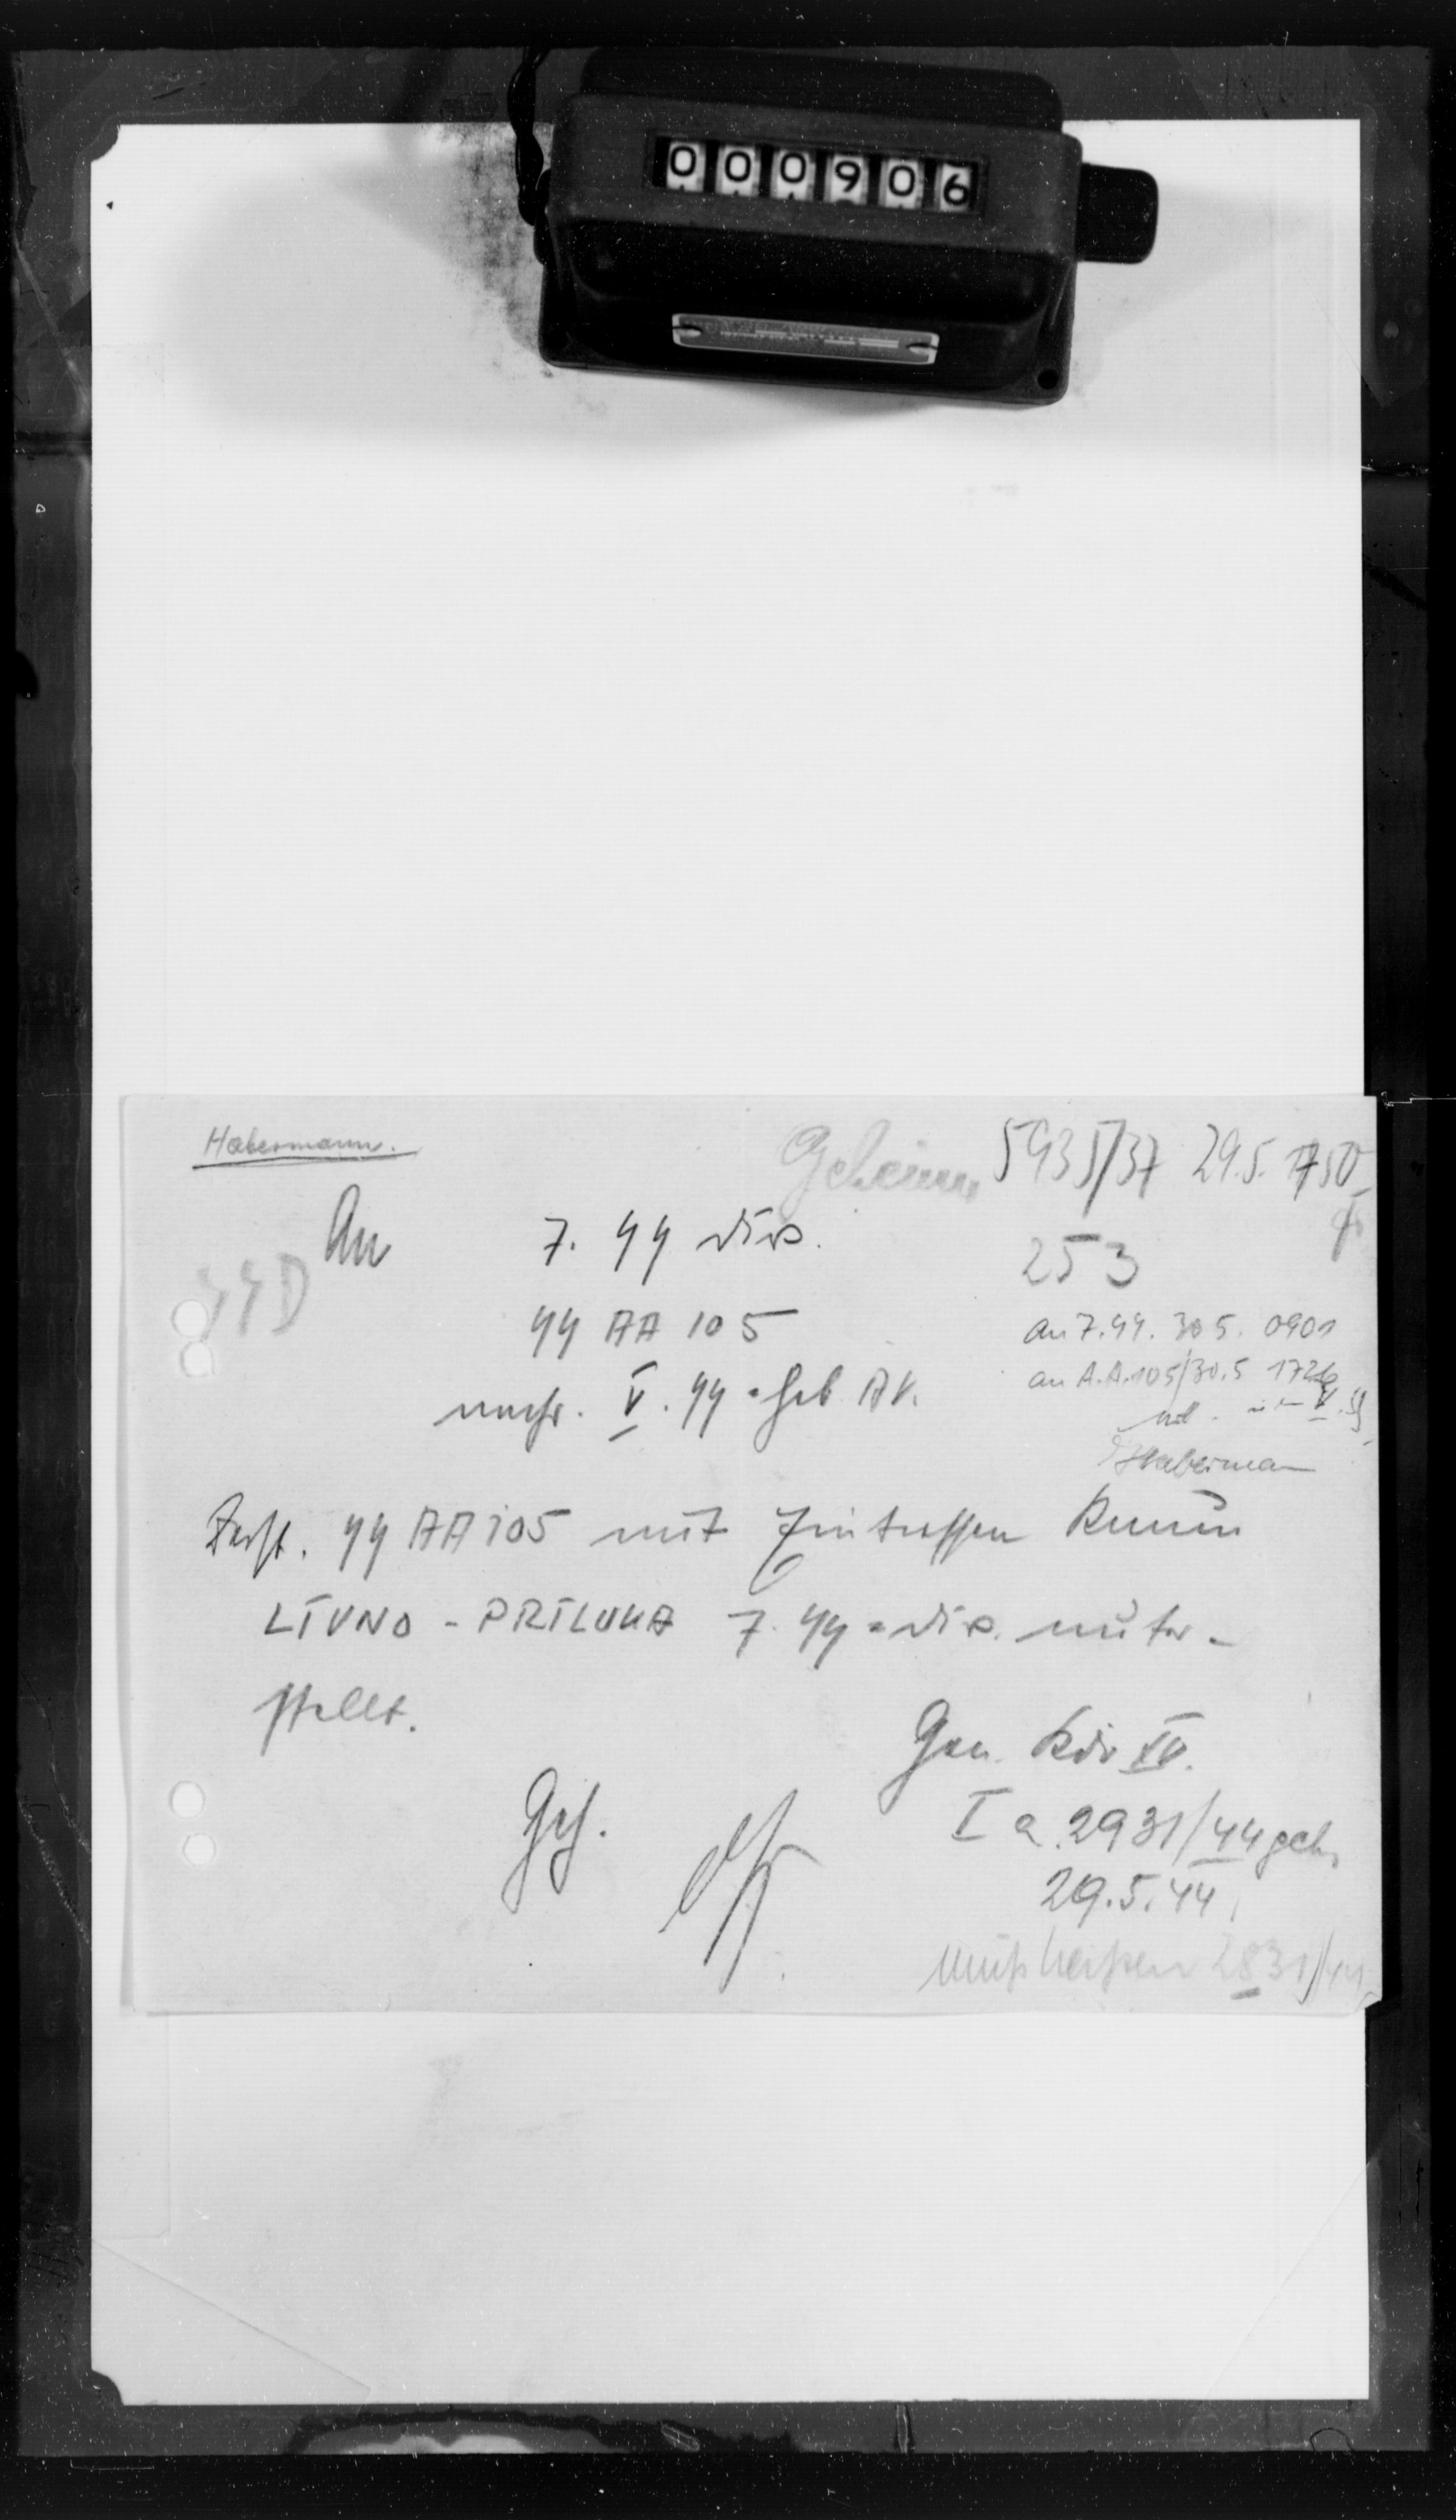 000906
Habermann.
Geheim 5935/37 29.5. 1750
An 7. SS Div.
SSD
253
SS AA 105
an 7.SS. 30 5. 0901
nachr. V. SS-Geb. A.K.
an A.A.105/30.5 1726
V. SS
Haberman
Verst. SS AA 105 mit Eintreffen Raum
LIVNO - PRILUKA 7. SS-Div. unter-
stellt.
Gen. Kdo XV.
Geh.
Ia 2931/44 geh.
29.5.44.
Muß heißen 2831/44